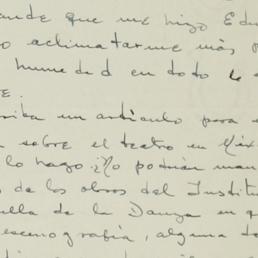 ande que me hizo Edu
o aclimatarme más p
humedad en todo le
e.
riba un artículo para e
sobre el teatro en Méx
lo hago ¿No podrían man
s de las obras del Institu
uela de la Danza en q
escenografía, alguna de